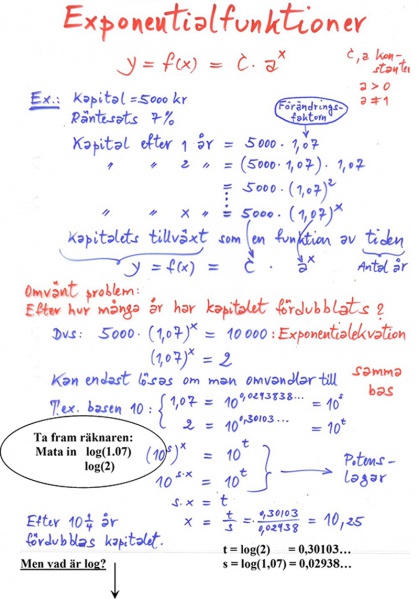 Exponentialfunktioner
y = f(x) = C · a^x
C, a kon-
stanter
a > 0
a ≠ 1
Ex.: Kapital = 5000 kr
Räntesats 7%
Förändrings-
faktorn
Kapital efter 1 år = 5000 · 1,07
" " 2 " = (5000 · 1,07) · 1,07
= 5000 · (1,07)^2
⋮
" " x " = 5000 · (1,07)^x
Kapitalets tillväxt som en funktion av tiden
y = f(x) = C · a^x
Antal år
Omvänt problem:
Efter hur många år har kapitalet fördubblats?
Dvs: 5000 · (1,07)^x = 10 000 : Exponentialekvation
(1,07)^x = 2
Kan endast lösas om man omvandlar till
samma
bas
T.ex. basen 10: { 1,07 = 10^0,0293838... = 10^s
2 = 10^0,30103... = 10^t
Ta fram räknaren:
Mata in log(1.07)
log(2)
(10^s)^x = 10^t
10^s·x = 10^t
Potens-
lagar
s·x = t
Efter 10 1/4 år
fördubblas kapitalet.
x = t/s = 0,30103/0,02938 = 10,25
t = log(2) = 0,30103…
s = log(1,07) = 0,02938…
Men vad är log?